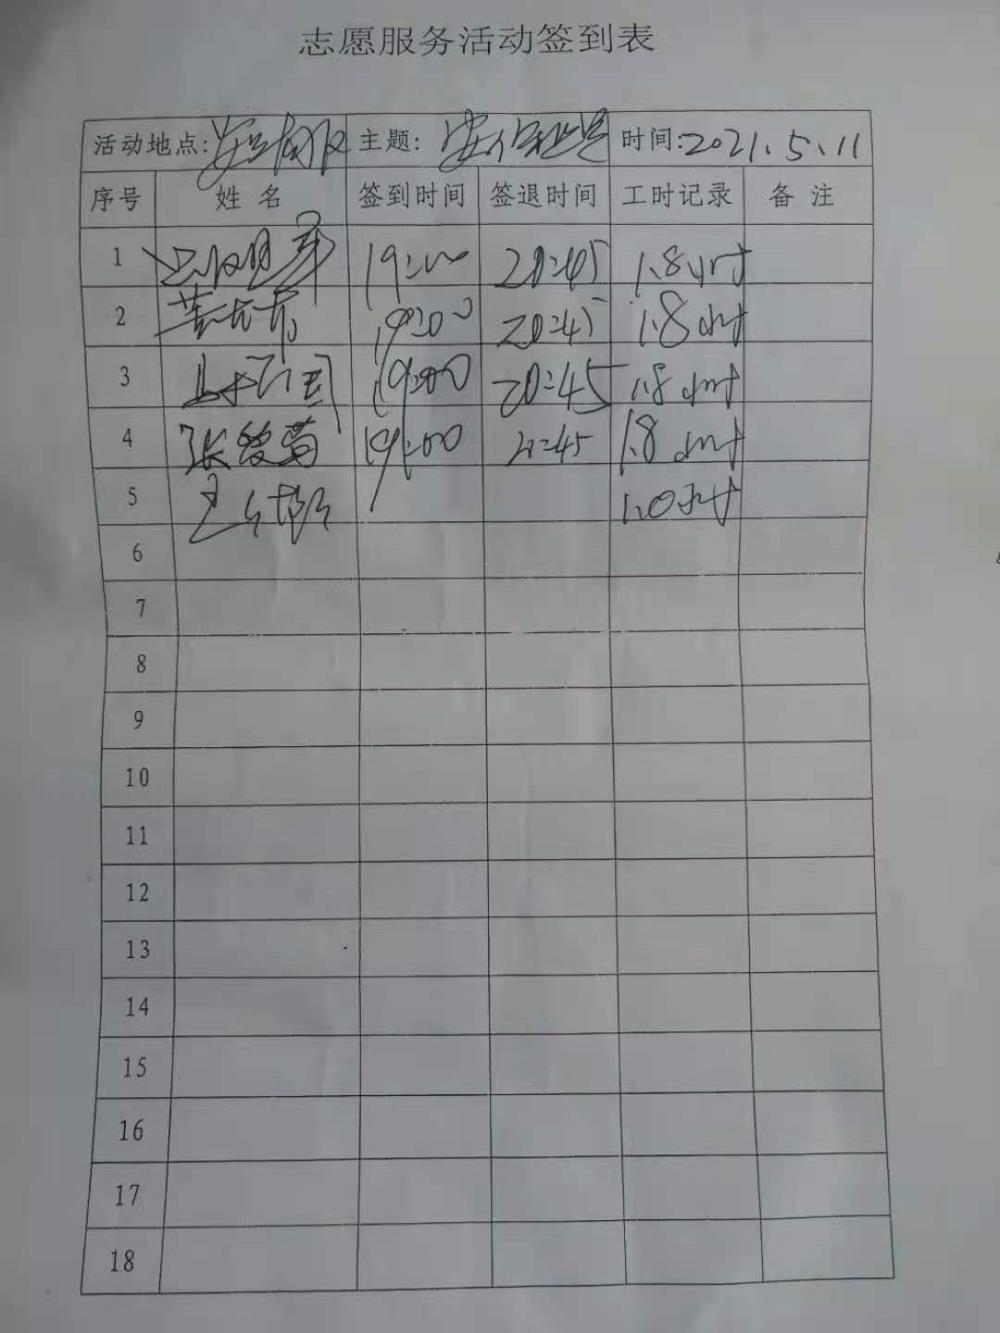 志愿服务活动签到表
活动地点: 主题: 时间:2021.5.11
序号 姓名 签到时间 签退时间 工时记录 备注
1 19:00 20:45 1.8小时
2 19:00 20:45 1.8小时
3 19:00 20:45 1.8小时
4 张 19:00 20:45 1.8小时
5 1.0小时
6
7
8
9
10
11
12
13
14
15
16
17
18